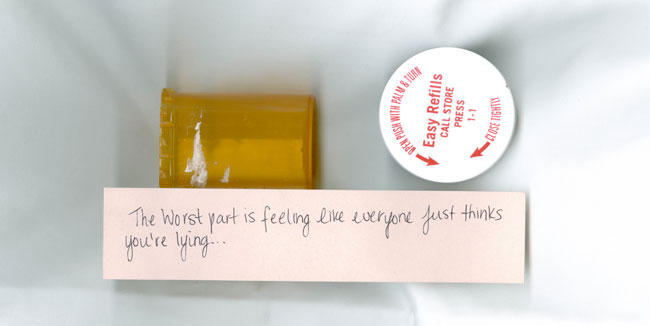 OPEN PUSH WITH PALM & TURN
Easy Refills
CALL STORE
PRESS
1-1
CLOSE TIGHTLY
The Worst part is feeling like everyone just thinks
you're lying...